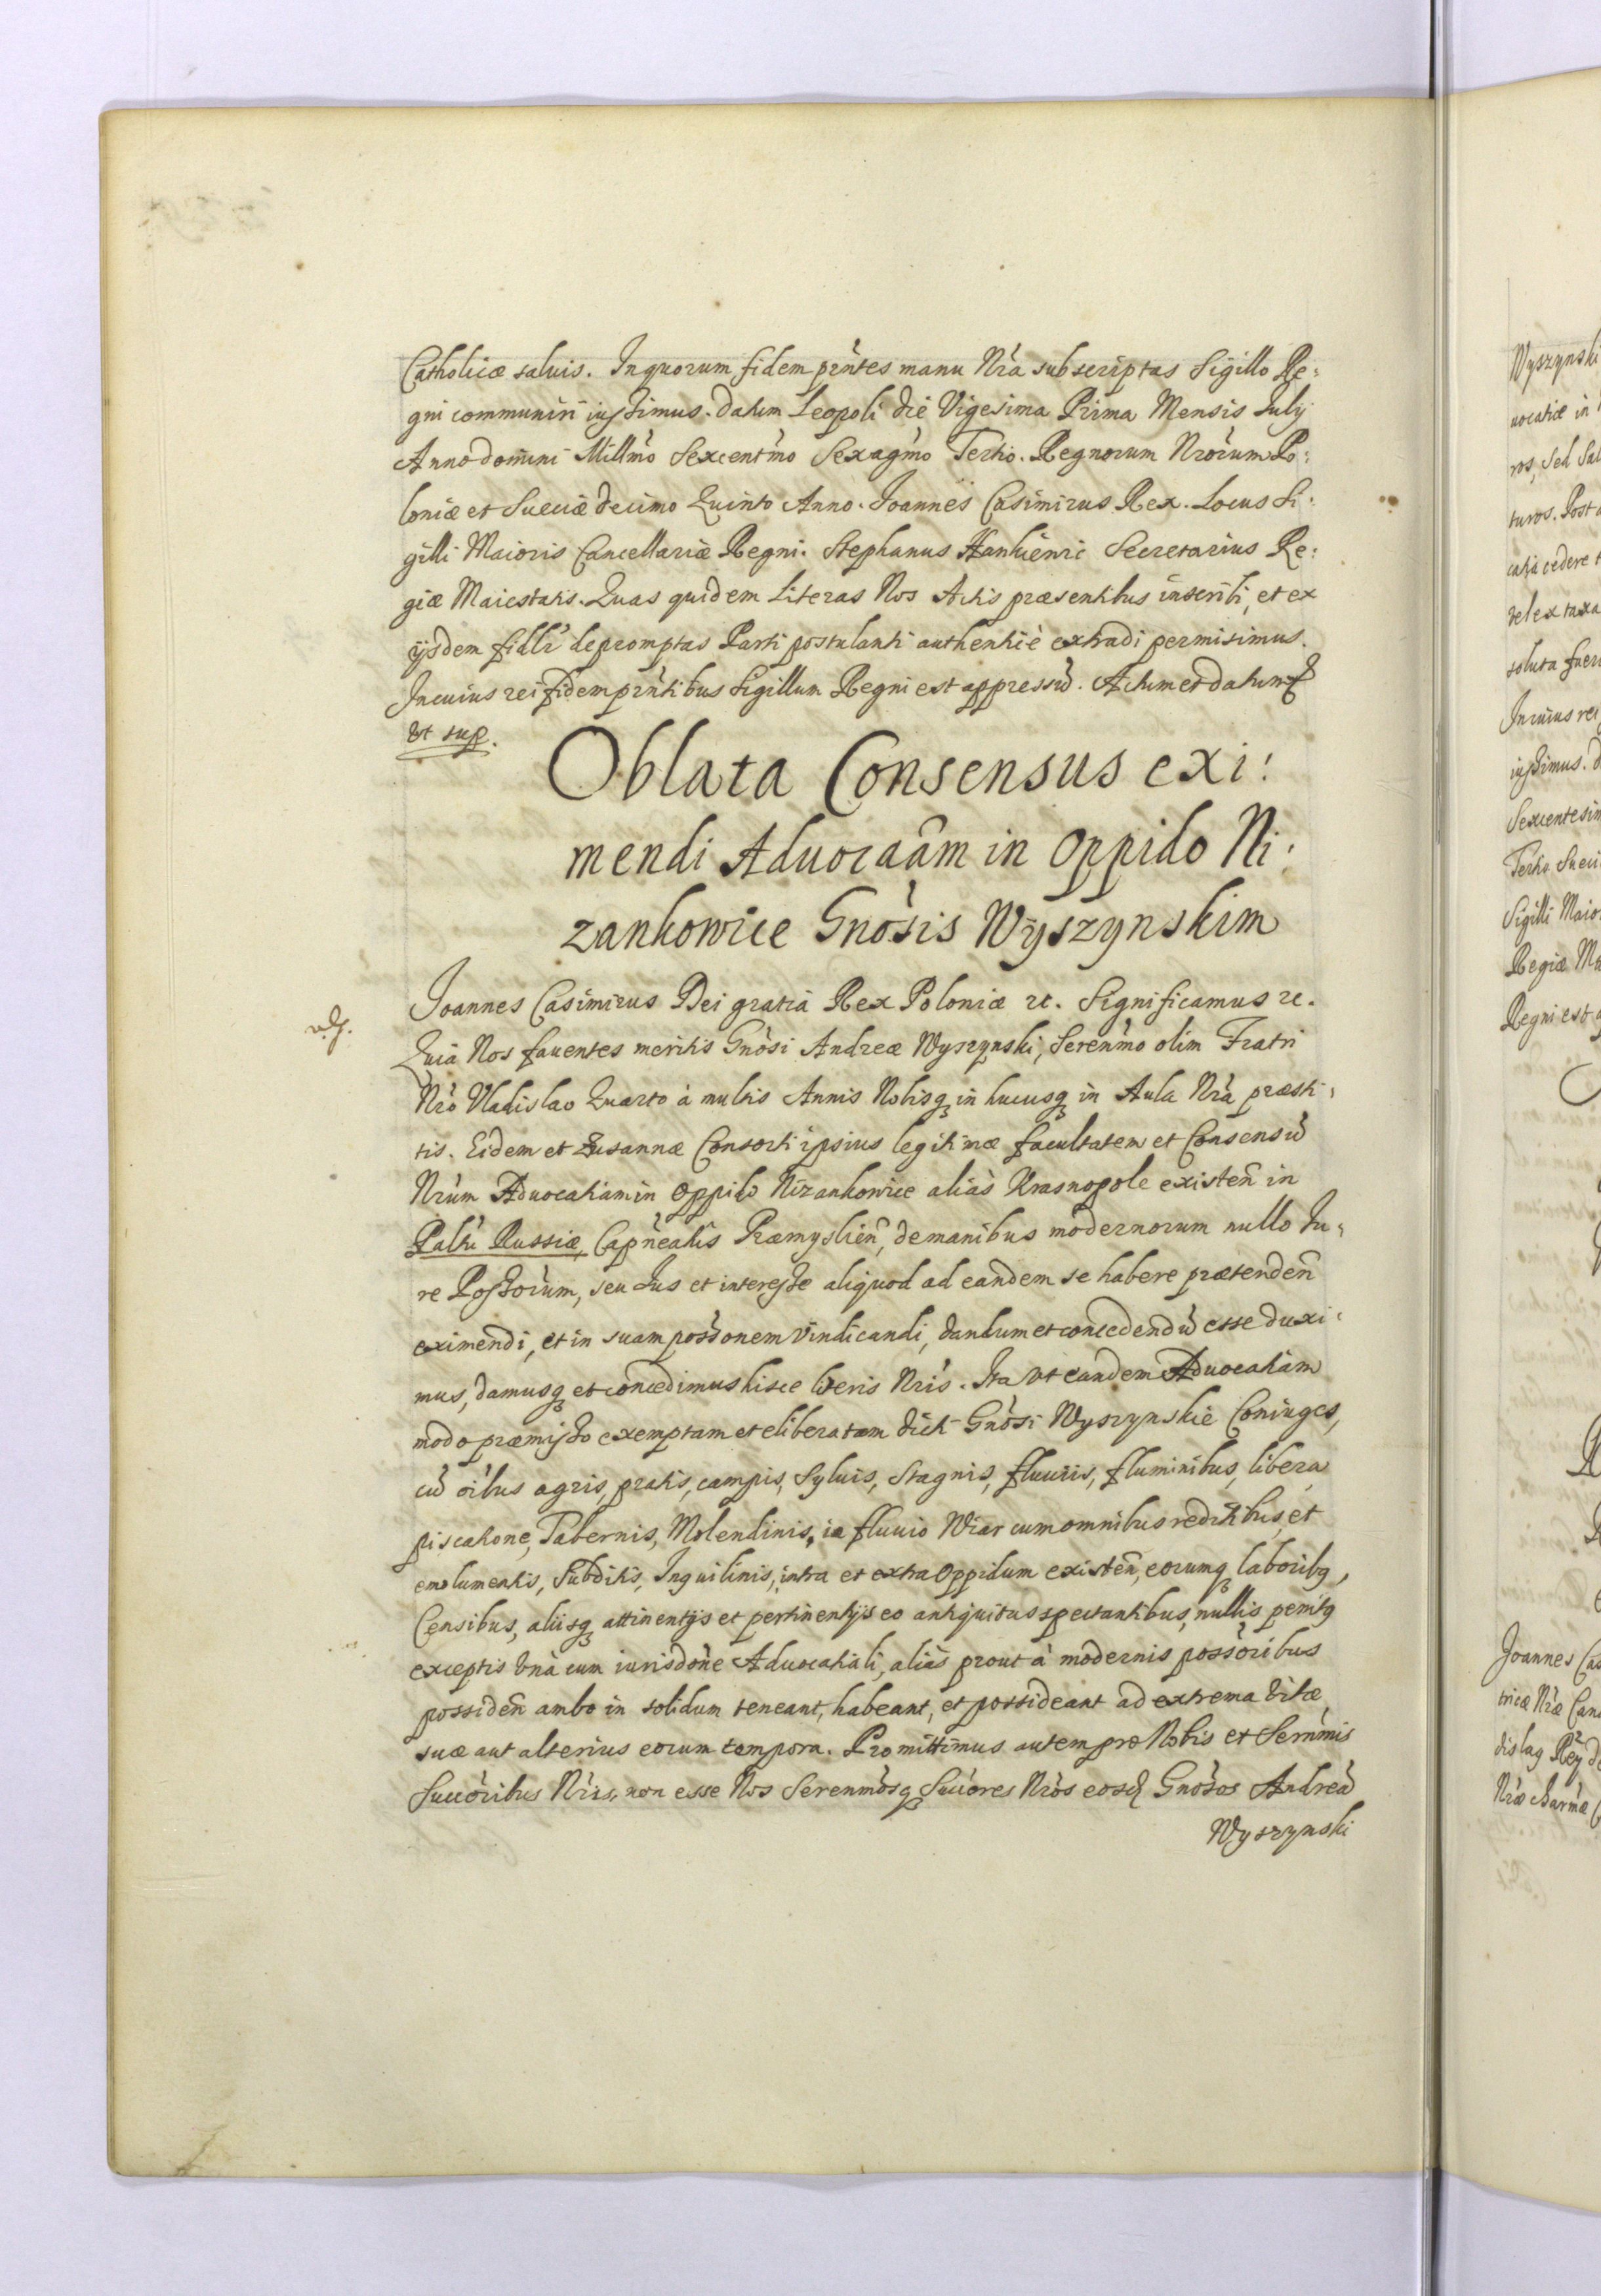 Catholicæ saluis. In quorum fidem prñtes manu Nrà subscriptas Sigillo Re:
gni communiri iussimus. Datum Leopoli die Vigesima Prima Mensis July
Anno domini Millmò Sexcentmò Sexagmò Tertio. Regnorum Nròrum Po:
loniæ et Sueciæ decimo Quinto Anno. Joannes Casimirus Rex. Locus Si:
gilli Maioris Cancellariæ Regni. Stephanus Hankiewic Secretarius Re:
giæ Maiestatis. Quas quidem Literas Nos Actis præsentibus inscribi, et ex
ijsdem fidlr depromptas Parti postulanti authenticè extradi permisimus.
In cuius rei fidem prñtibus Sigillum Regni est appressũ. Actum et datum
Vt sup.
Oblata Consensus exi:
mendi Aduocaãm in Oppido Ni:
zankowice Gnòsis Wyszynskim
Joannes Casimirus Dei gratia Rex Poloniæ etc. Significamus etc.
Quia Nos fauentes meritis Gnòsi Andreæ Wyszynski, Serenmò olim Fratri
Nrò Vladislao Quarto à multis Annis Nobisq in hucusq in Aula Nrà præsti:
tis. Eidem et Zusannæ Consorti ipsius legitimæ facultatem et Consensũ
Nrùm Aduocatiam in Oppido Nizankowice aliàs Krasnopole existeñ in
Paltũ Russiæ, Capneatûs Præmyslieñ, de manibus modernorum nullo Ju:
re Possorùm, seu Jus et interesse aliquod ad eandem se habere prætendeñ
eximendi, et in suam possònem vindicandi, dandum et concedendũ esse duxi:
mus, damusq et concedimus hisce literis Nrìs. Ita vt eandem Aduocatiam
modo præmisso exemptam et eliberatam dicti Gnòsi Wyszynskie Coniuges,
cũ oìbus agris, pratis, campis, Syluis, Stagnis, fluuiis, fluminibus, libera
piscatione, Tabernis, Molendinis, in fluuio Wiar cum omnibus reditibus, et
emolumentis, Subditis, Inquilinis, intra et extra Oppidum existeñ, eorumq laboribq,
Censibus, aliisq attinentijs et pertinentijs eo antiquitus spectantibus, nullis penitq
exceptis vnà cum iurisdòne Aduocatiali, aliàs prout à modernis possòribus
possideñ ambo in solidum teneant, habeant, et possideant ad extrema vitæ
suæ aut alterius eorum tempora. Promittimus autem pro Nobis et Sernmis
Succòribus Nrìis, non esse Nos Serenmòsq Succòres Nròs eosd Gnòsos Andreã
Wyszynski